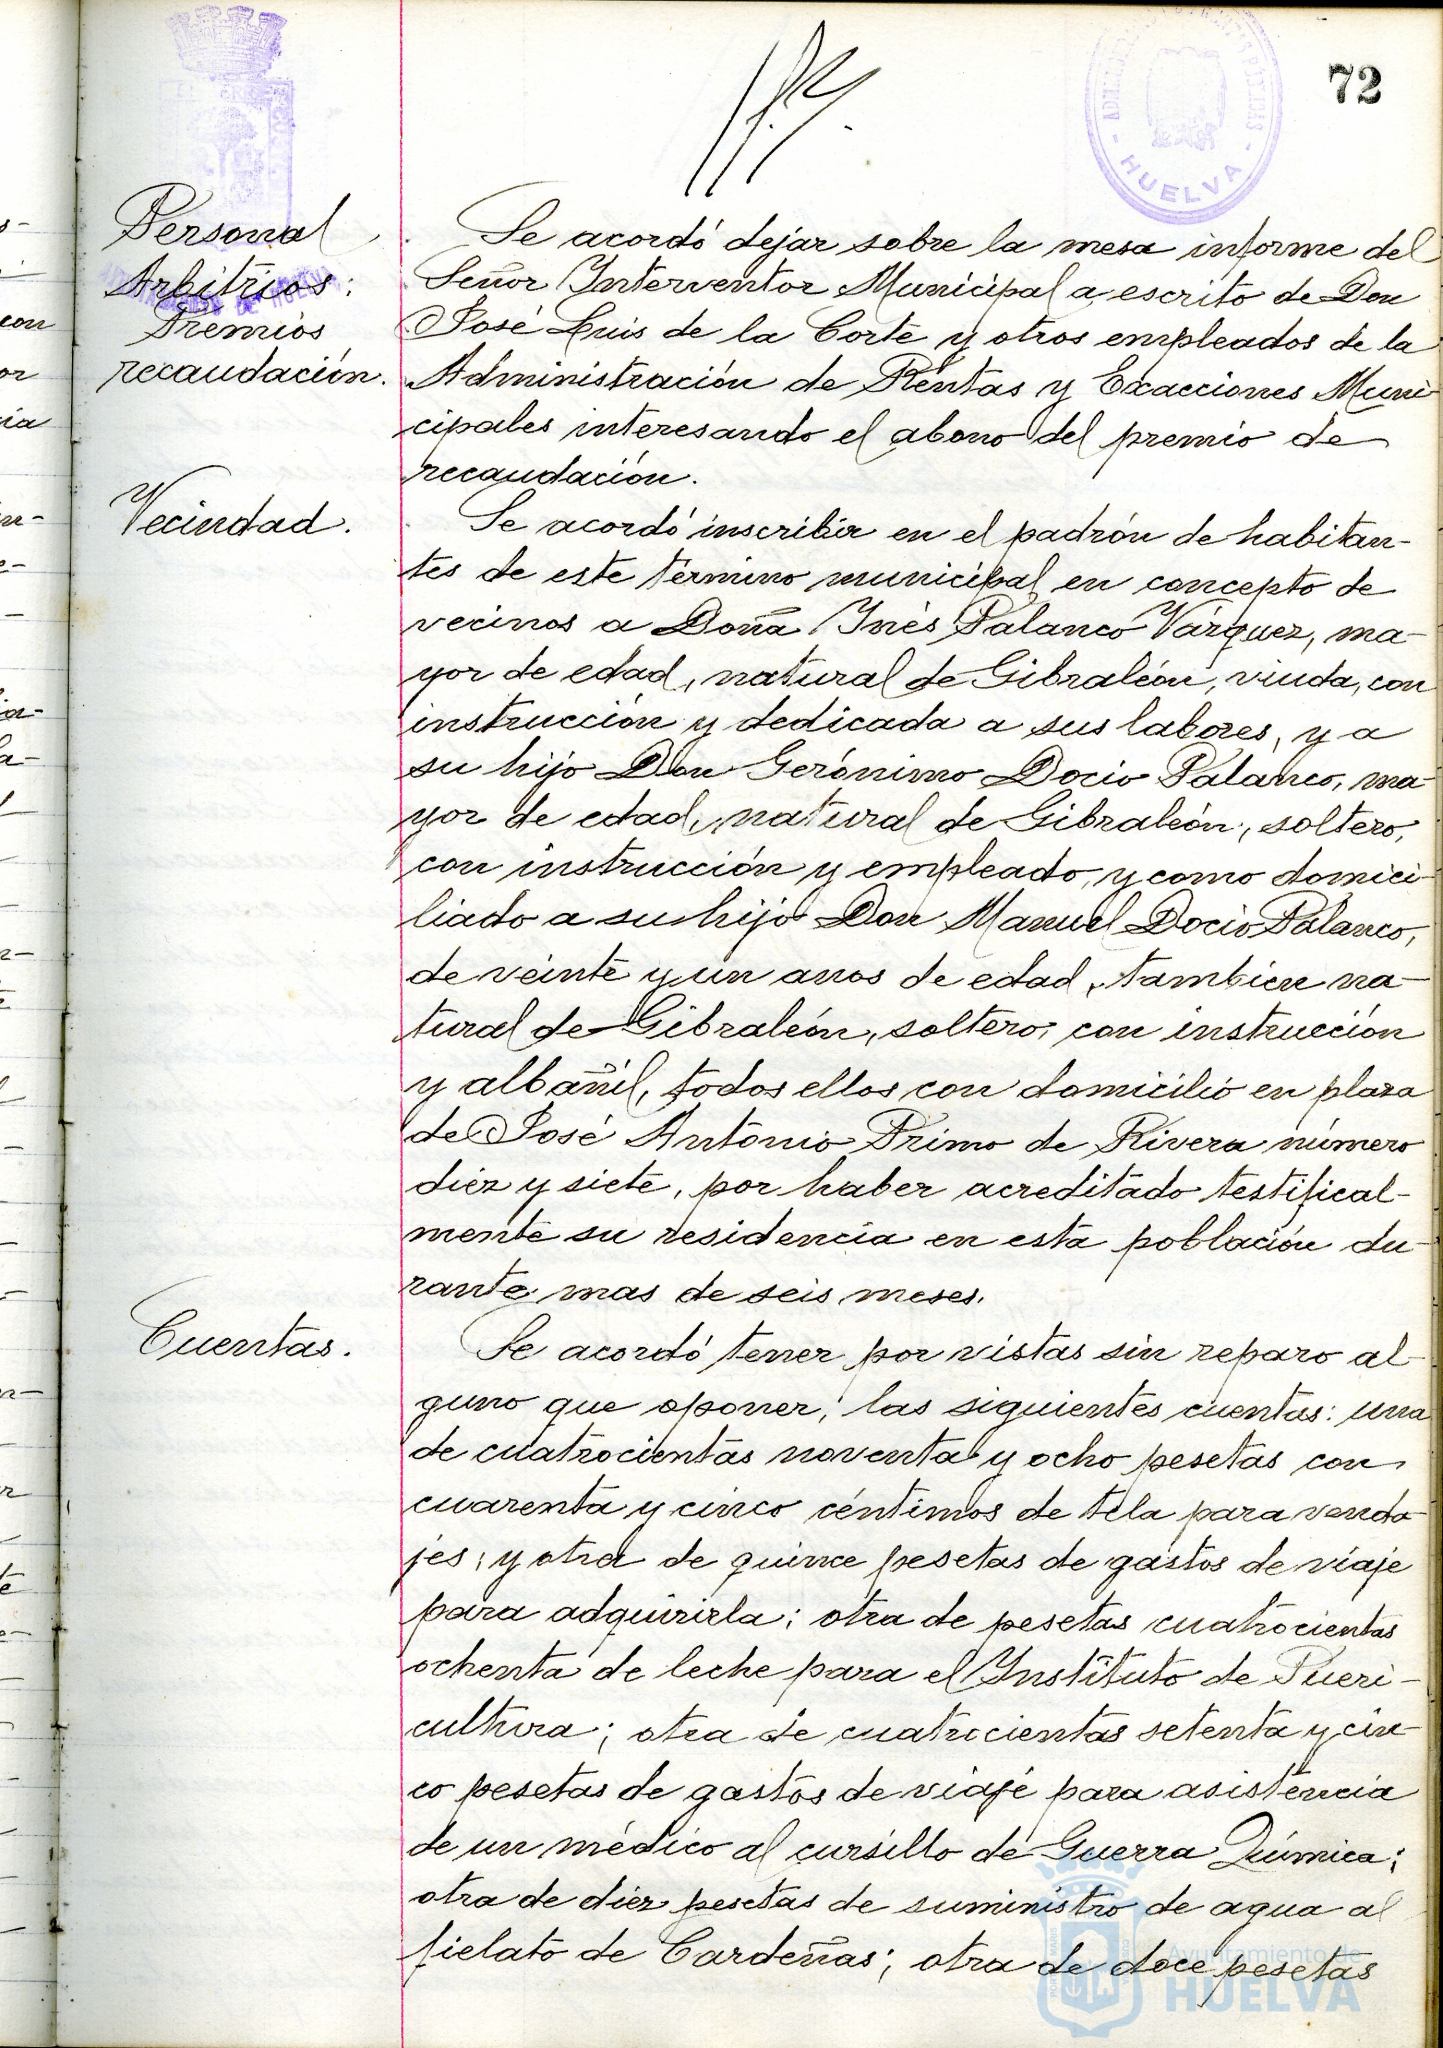 72
HUELVA
Personal
Arbitrios:
Premios
recaudación.
Se acordó dejar sobre la mesa informe del
Señor Interventor Municipal a escrito de Don
José Luis de la Corte y otros empleados de la
Administración de Rentas y Exacciones Muni-
cipales interesando el abono del premio de
recaudación.
Vecindad.
Se acordó inscribir en el padrón de habitan-
tes de este término municipal en concepto de
vecinos a Doña Inés Palanco Várquez, ma-
yor de edad, natural de Gibraleón, viuda, con
instrucción y dedicada a sus labores, y a
su hijo Don Gerónimo Docio Palanco, ma-
yor de edad, natural de Gibraleón, soltero,
con instrucción y empleado, y como domici-
liado a su hijo Don Manuel Docio Palanco,
de veinte y un anos de edad, tambien na-
tural de Gibraleón, soltero, con instrucción
y albañil, todos ellos con domicilio en plaza
de José Antonio Primo de Rivera número
diez y siete, por haber acreditado testifical-
mente su residencia en esta población du-
rante mas de seis meses.
Cuentas.
Se acordó tener por vistas sin reparo al-
guno que oponer, las siguientes cuentas: una
de cuatrocientas noventa y ocho pesetas con
cuarenta y cinco céntimos de tela para venda-
jes; y otra de quince pesetas de gastos de viaje
para adquirirla; otra de pesetas cuatrocientas
ochenta de leche para el Instituto de Pueri-
cultura; otra de cuatrocientas setenta y cin-
co pesetas de gastos de viaje para asistencia
de un médico al cursillo de Guerra Química;
otra de diez pesetas de suministro de agua al
fielato de Cardeñas; otra de doce pesetas
Ayuntamiento de
HUELVA